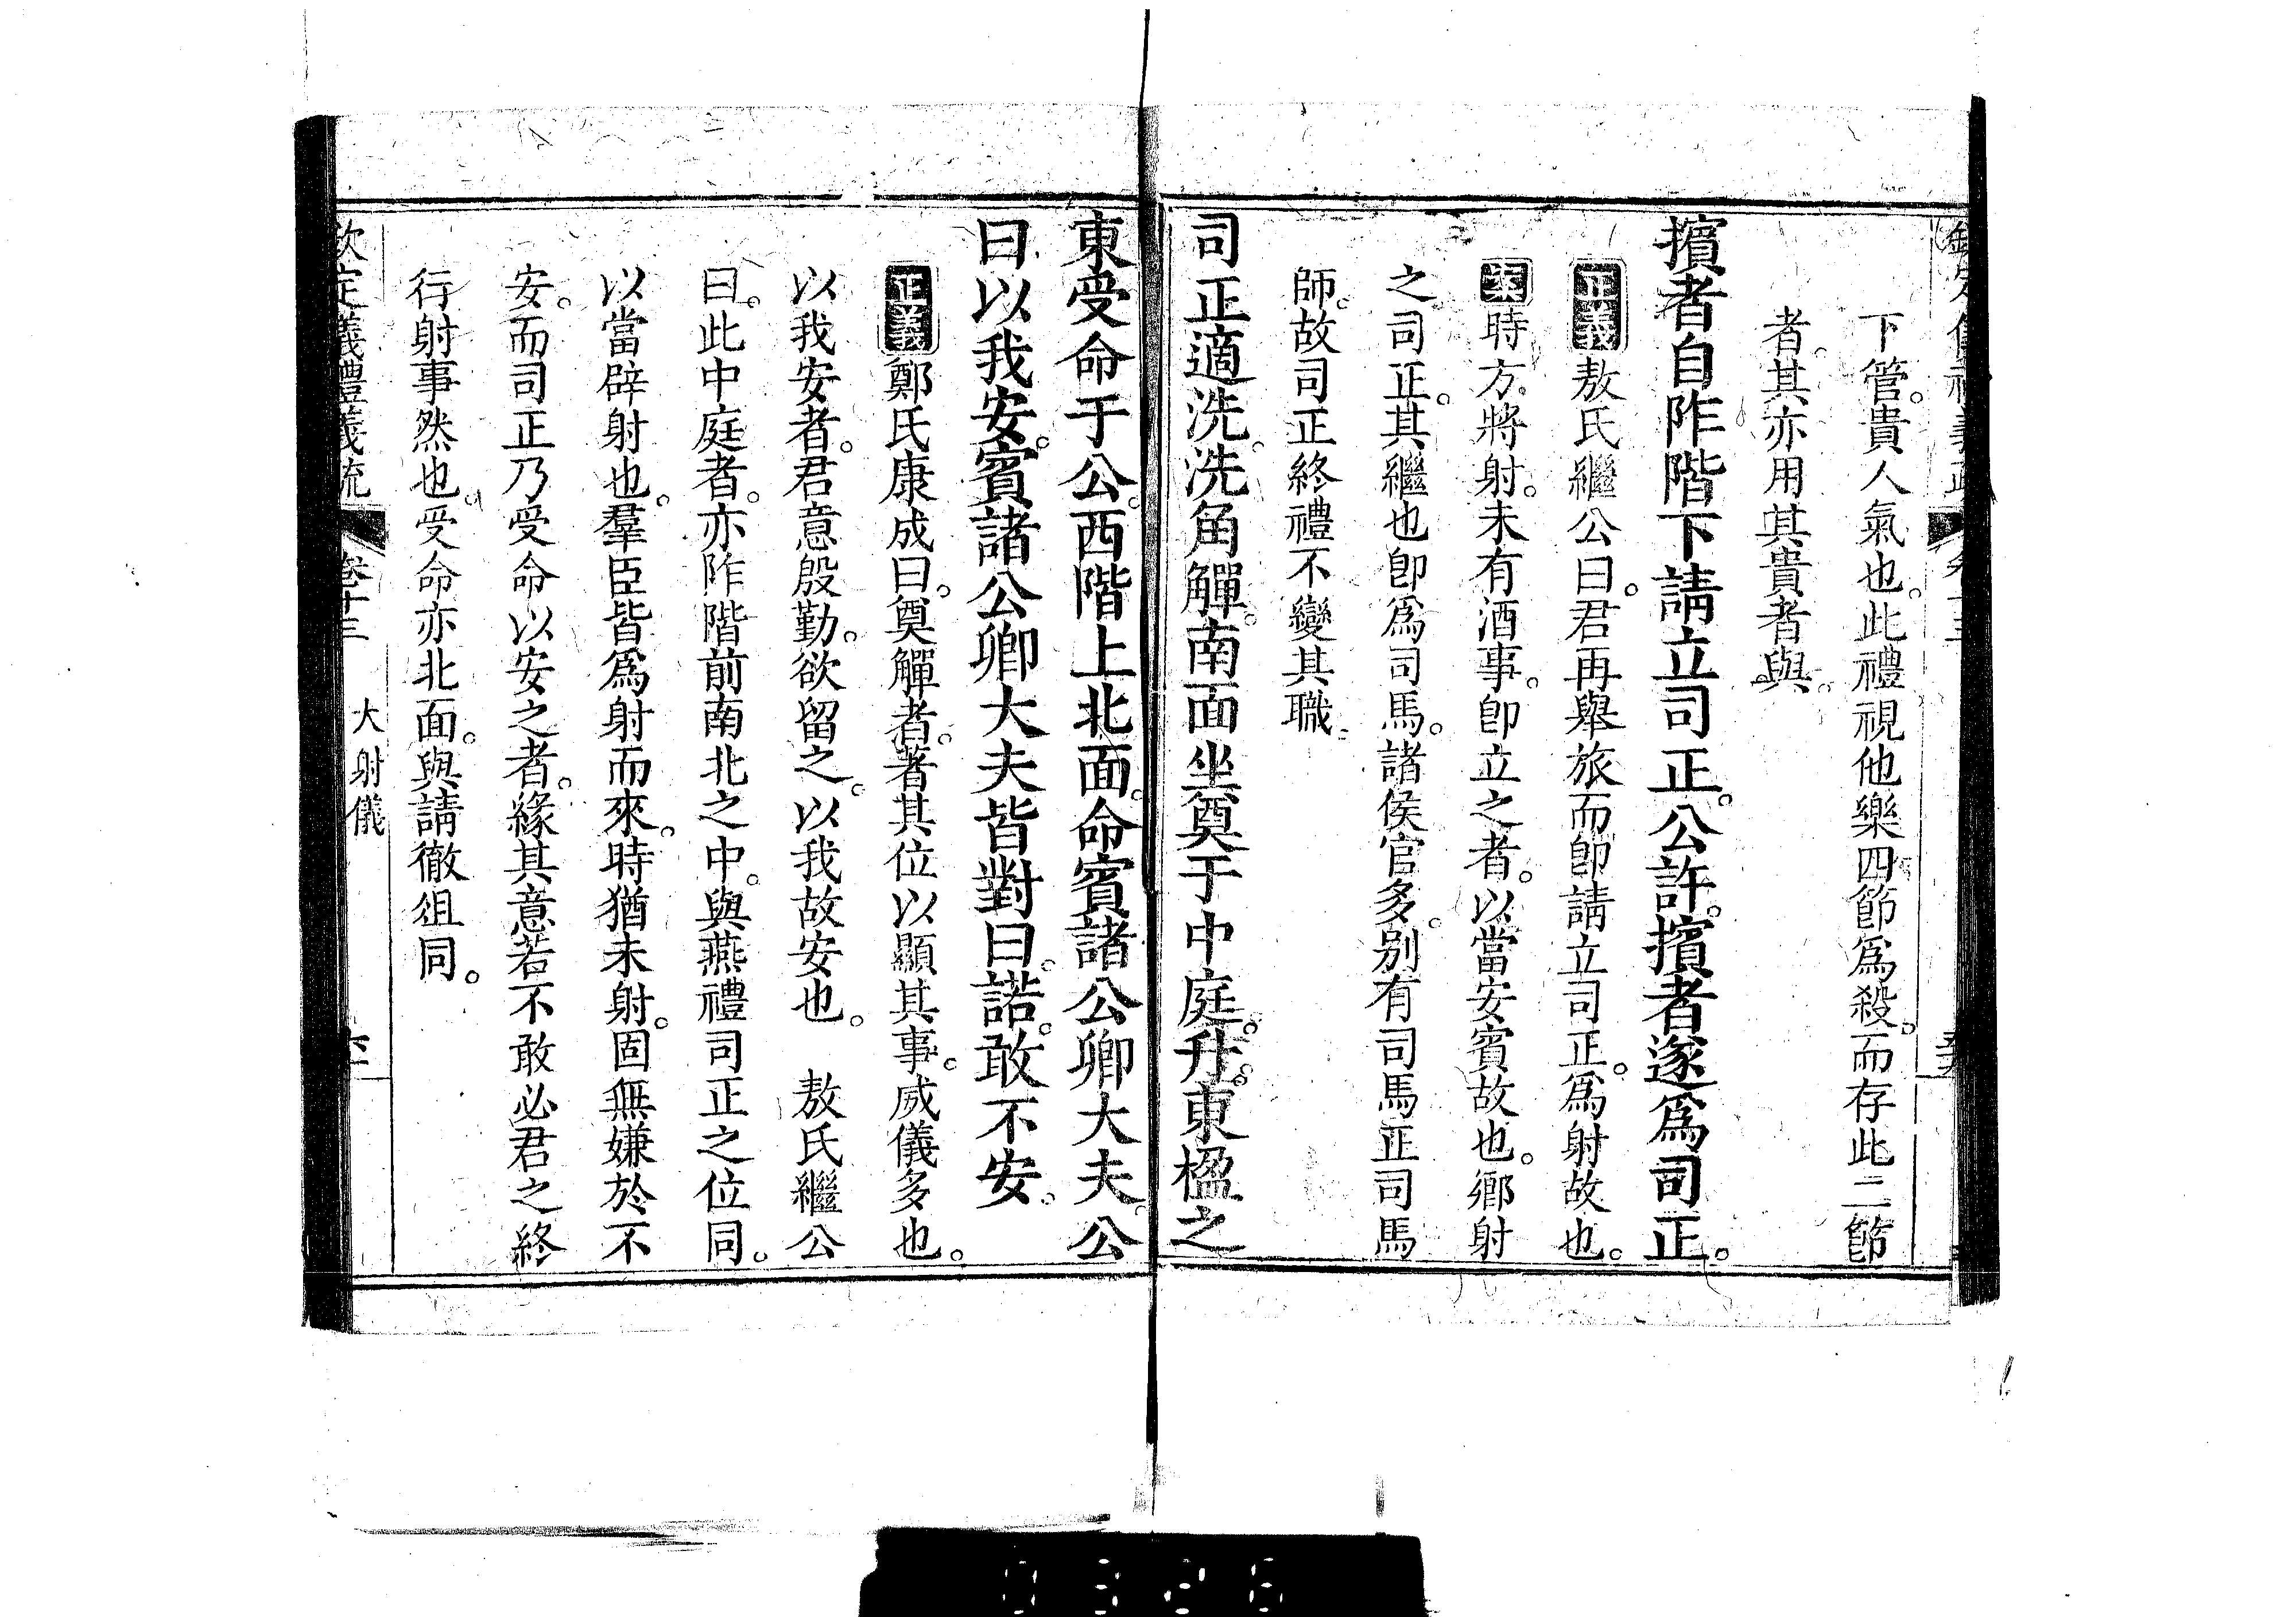 下管。貴人氣也。此禮視他樂四節爲殺。而存此二節
者。其亦用其貴者與。
擯者自阼階下請立司正。公許。擯者遂爲司正。
正義敖氏繼公曰。君再舉旅而卽請立司正。爲射故也。
案時方將射。未有酒事。卽立之者。以當安賓故也。鄉射
之司正。其繼也卽爲司馬。諸侯官多。別有司馬正司馬
師。故司正終禮不變其職。
司正適洗。洗角觶。南面坐奠于中庭。升。東楹之
東受命于公。西階上北面。命賓諸公卿大夫。公
曰以我安。賓諸公卿大夫皆對曰。諾。敢不安。
正義鄭氏康成曰。奠觶者。著其位以顯其事。威儀多也。
以我安者。君意殷勤。欲留之。以我故安也。　敖氏繼公
曰。此中庭者。亦阼階前南北之中。與燕禮司正之位同。
以當辟射也。羣臣皆爲射而來。時猶未射。固無嫌於不
安。而司正乃受命以安之者。緣其意若不敢必君之終
行射事然也。受命亦北面。與請徹俎同。
欽定儀禮義疏　卷十三　大射儀